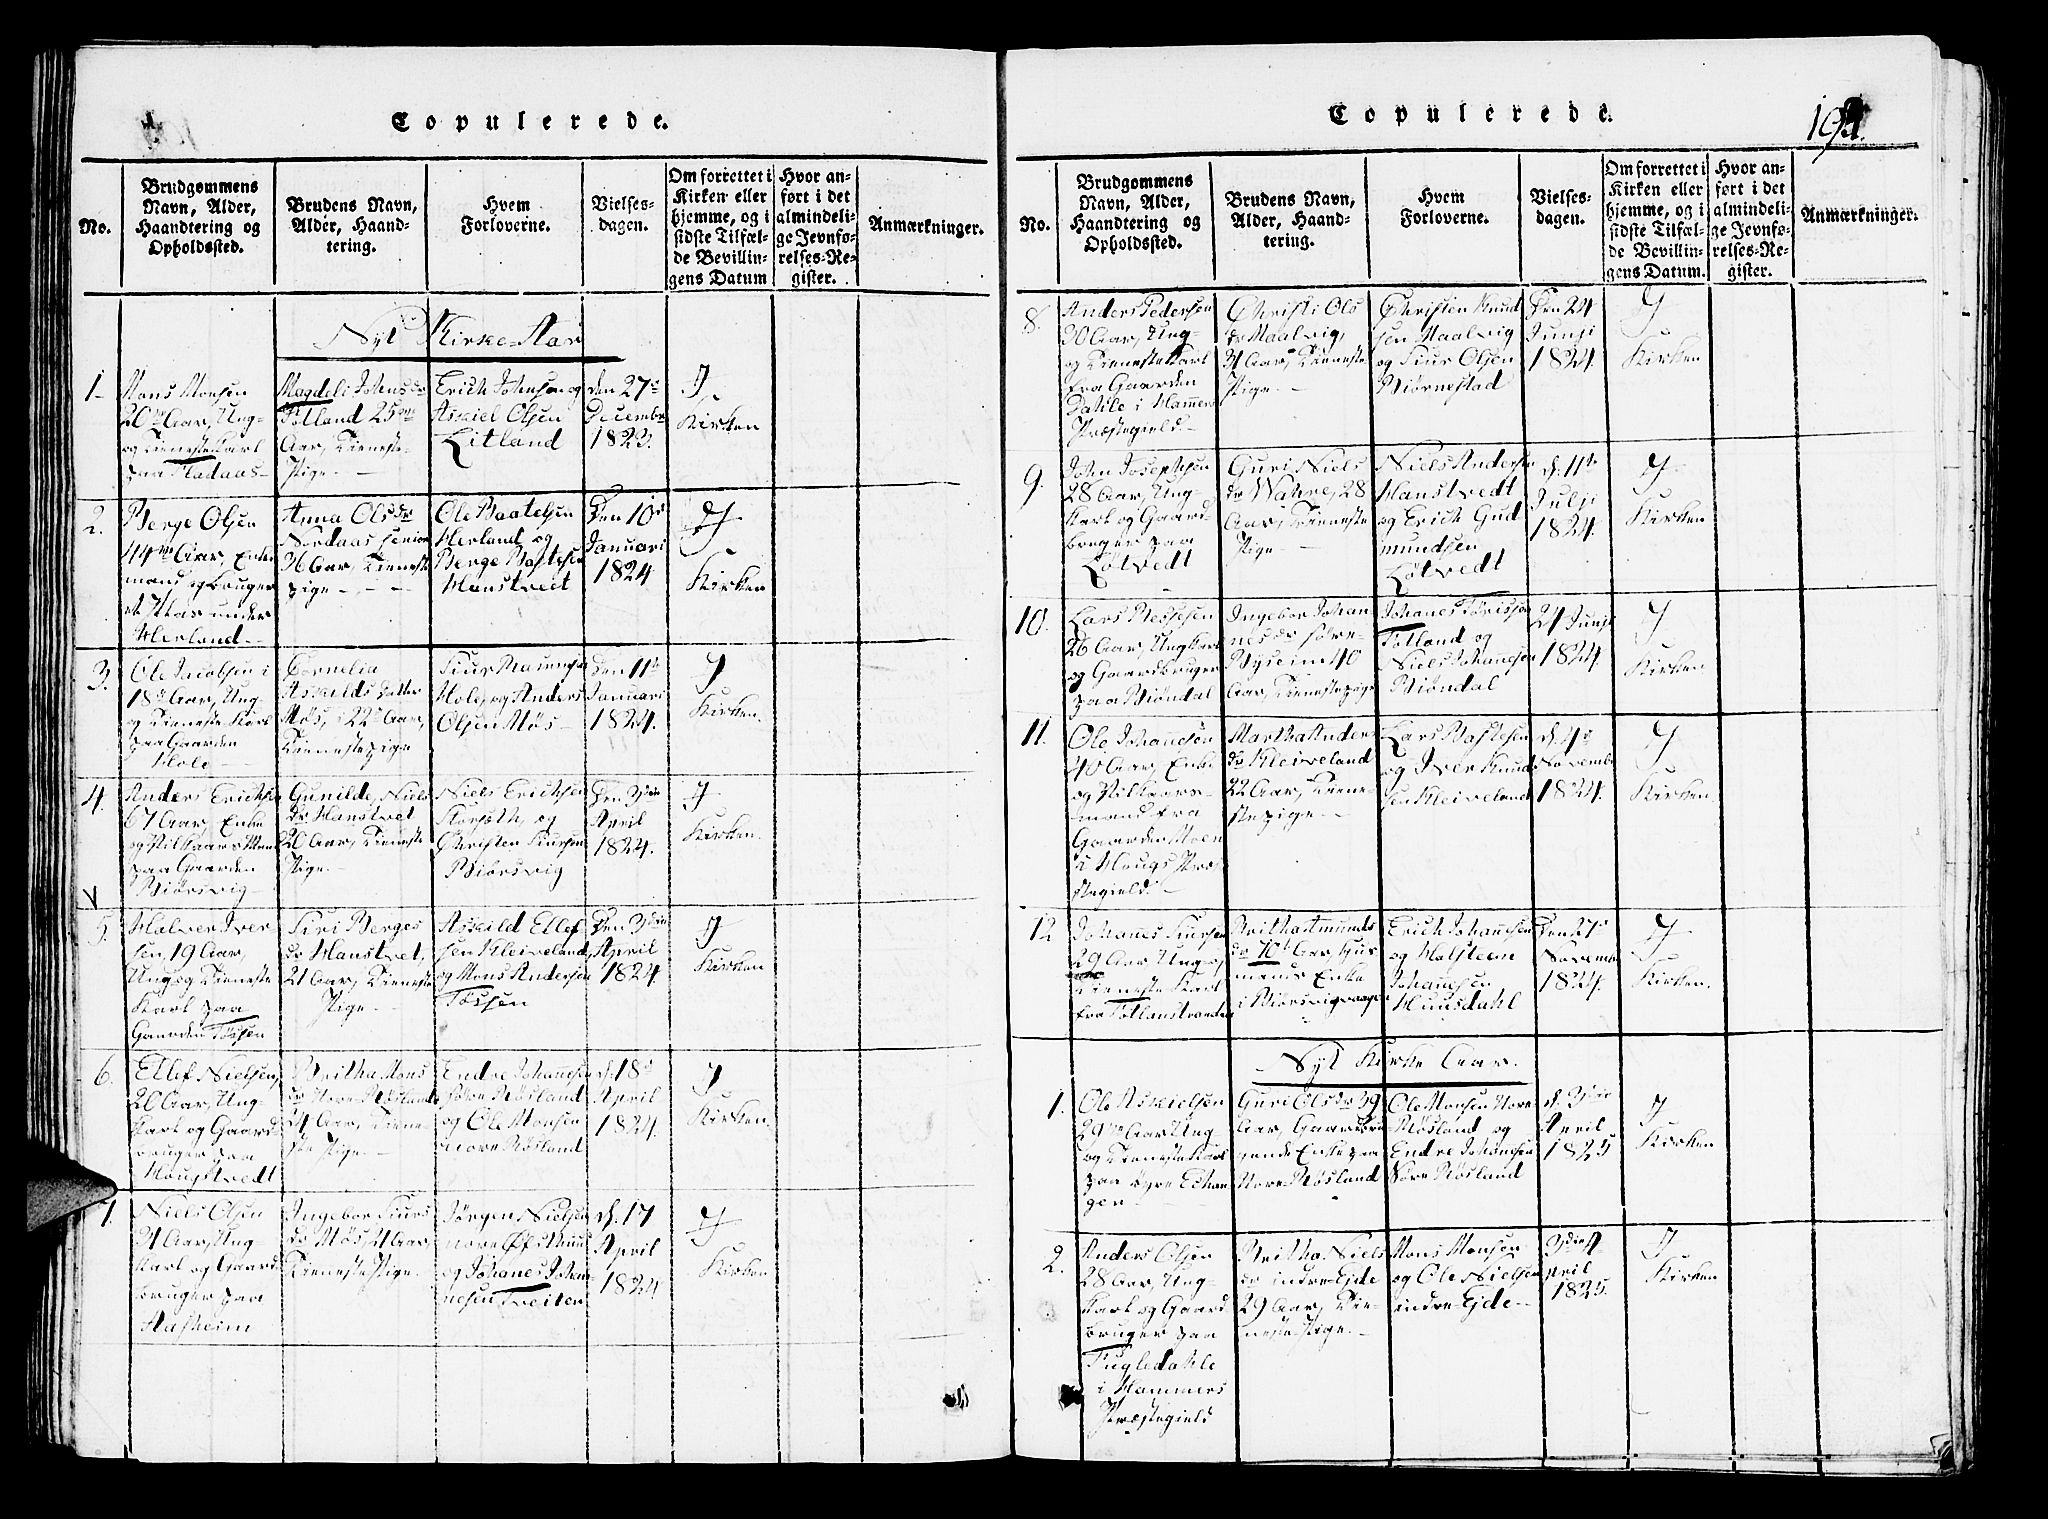 Copulerede.
No.
Brudgommens
Navn, Alder,
Haandtering og
Opholdssted.
Brudens Navn,
Alder, Haand-
tering.
Hvem
Forloverne.
Vielses-
dagen.
Om forrettet i
Kirken eller
hjemme, og i
sidste Tilfæl-
de Bevillin-
gens Datum
Hvor an-
ført i det
almindeli-
ge Jevnfø-
relses-Re-
gister.
Anmærkninger.
Nyt Kirke-Aar
1
Mons Monsen
20 Aar, Ung-
og Tienestekarl
paa Fladaas
Magdeli Johnsdr
Totland 25
Aar, Tieneste-
Pige.
Erich Johnsen og
Askiel Olsen
Litland
den 27de
Decembr
1823.
I
Kirken
2.
Berge Olsen
44 Aar, Enke-
mand og bruger
et Plas under
Herland
Anna Olsdr
Nordaas senior
36 Aar, Tieneste
pige
Ole Baatelsen
Herland og
Berge Bastesen
Hanstveit
Den 10de
Januari
1824
I
Kirken
3.
Ole Jacobsen i
18 Aar, Ung
og Tieneste Karl
paa Gaarden
Hole
Cornelia
Askilds datter
Møs, i 22 Aar,
Tienestepige
Siur
Hole, og Anders
Olsen Møs
Den 11te
Januari
1824.
I
Kirken.
4.
Anders Erichsen
67 Aar, Enke
og Vilkaars Man
paa Gaarden
Biørsvig
Gunilde Niels
dr Hanstvet
20 Aar, Tieneste
Pige.
Niels Erichsen
og
Christen Siursen
Biørsvig
Den 3die
April
1824.
I
Kirken.
V
5.
Halvor Iver
sen, 19 Aar,
Ung og Tieneste
Karl paa
Gaarden Tøssen
Siri Berges
dr Hanstvet,
21 Aar, Tieneste
Pige
Askild Ellef
sen Kleiveland
og Mons Andersen
Tøssen
Den 3die
April
1824.
I
Kirken
6.
Ellef Nielsen,
20 Aar, Ung-
Karl og Gaard
bruger paa
Hougstvedt
Britha Mons
dr Nore Røsland
21 Aar, Tiene-
ste Pige.
Endre Johannesen
søre Røsland
og Ole Monsen
nore Røsland
d. 18de
April
1824.
I
Kirken.
7.
Niels Olsen
31 Aar, Ung-
Karl og Gaard
bruger paa
Aasheim
Ingebor Siurs
dr Møs, 21 Aar,
Tieneste Pige.
Jørgen Nielsen
nore
og Johanes Johan-
nesen Tveiten
d. 17
April
1824
I
Kirken
Copulerede.
No.
Brudgommens
Navn, Alder,
Haandtering og
Opholdssted.
Brudens Navn,
Alder, Haand-
tering.
Hvem
Forloverne.
Vielses-
dagen.
Om forrettet i
Kirken eller
hjemme, og i
sidste Tilfæl-
de Bevillin-
gens Datum.
Hvor an-
ført i det
almindeli-
ge Jevnfø-
relses-Re-
gister.
Anmærkninger.
8.
Anders Pedersen
30 Aar, Ung-
og Tienestekarl
fra Gaarden
Dahle i Hammers
Præstegield
Christi Ols
dr Maalvig,
31 Aar, Tieneste
Pige.
Christen Knud
sen Maalvig
og Siur Olsen
Biørnestad
Den 24
Junji
1824.
I
Kirken
9.
John Josephsen
28 Aar, Ung-
Karl og Gaard-
bruger paa
Løtvedt
Guri Niels
dr Wahre, 28
Aar, Tieneste
Pige
Niels Andersen
Hanstvedt
og Erich Gud
mundsen
Løtvedt
d. 11te
Julji
1824.
I
Kirken
10.
Lars Bessesen
26 Aar, Ungkarl
og Gaardbruger
paa Biøndal
Ingebor Johan
nesdr søre-
Byseim 40
Aar, Tienestepige
Johanes
Totland og
Niels Johannesen
Biøndal
24 Junji
1824.
I
Kirken
11.
Ole Johannesen
40 Aar, Enke
og Vilkaars-
mand fra
Gaarden Moen
i Hougs Præ-
stegield.
Martha Anders
dr Kleiveland
22 Aar, Tiene-
stepige.
Lars Bastesen
og Iver Knud
sen Kleiveland
d. 4de
Novembr
1824.
I
Kirken.
12
Johanes Siursen
29 Aar Ung-og
Tieneste Karl
fra Totlanstranden
Britha Amunds
dr 70 Aar, Hus
mands Enke
i Biørsvigvaagen
Erich Johannesen
og Holsteen
Johannesen
Huusdahl
Den 27de
Novemb
1824.
I
Kirken.
Nyt Kirke Aar.
1.
Ole Askielsen
29 Aar Ung
og Tieneste Karl
paa
ger
Guri Olsdr 39
Aar, Gaardbru
gende Enke paa
Nore Røsland
Ole Monsen Nore
Røsland og
Endre Johannesen
Søre Røsland
d. 3die
April
1825
I
Kirken
2.
Anders Olsen
28 Aar, Ung-
Karl og Gaard
bruger paa
Fugledahle
i Hammers
Præstegield
Britha Niels
dr indre-Eide
29 Aar, Tie-
neste Pige.
Mons Monsen
og Ole Nielsen
indre-Eide
3die A
pril
1825.
I
Kirken